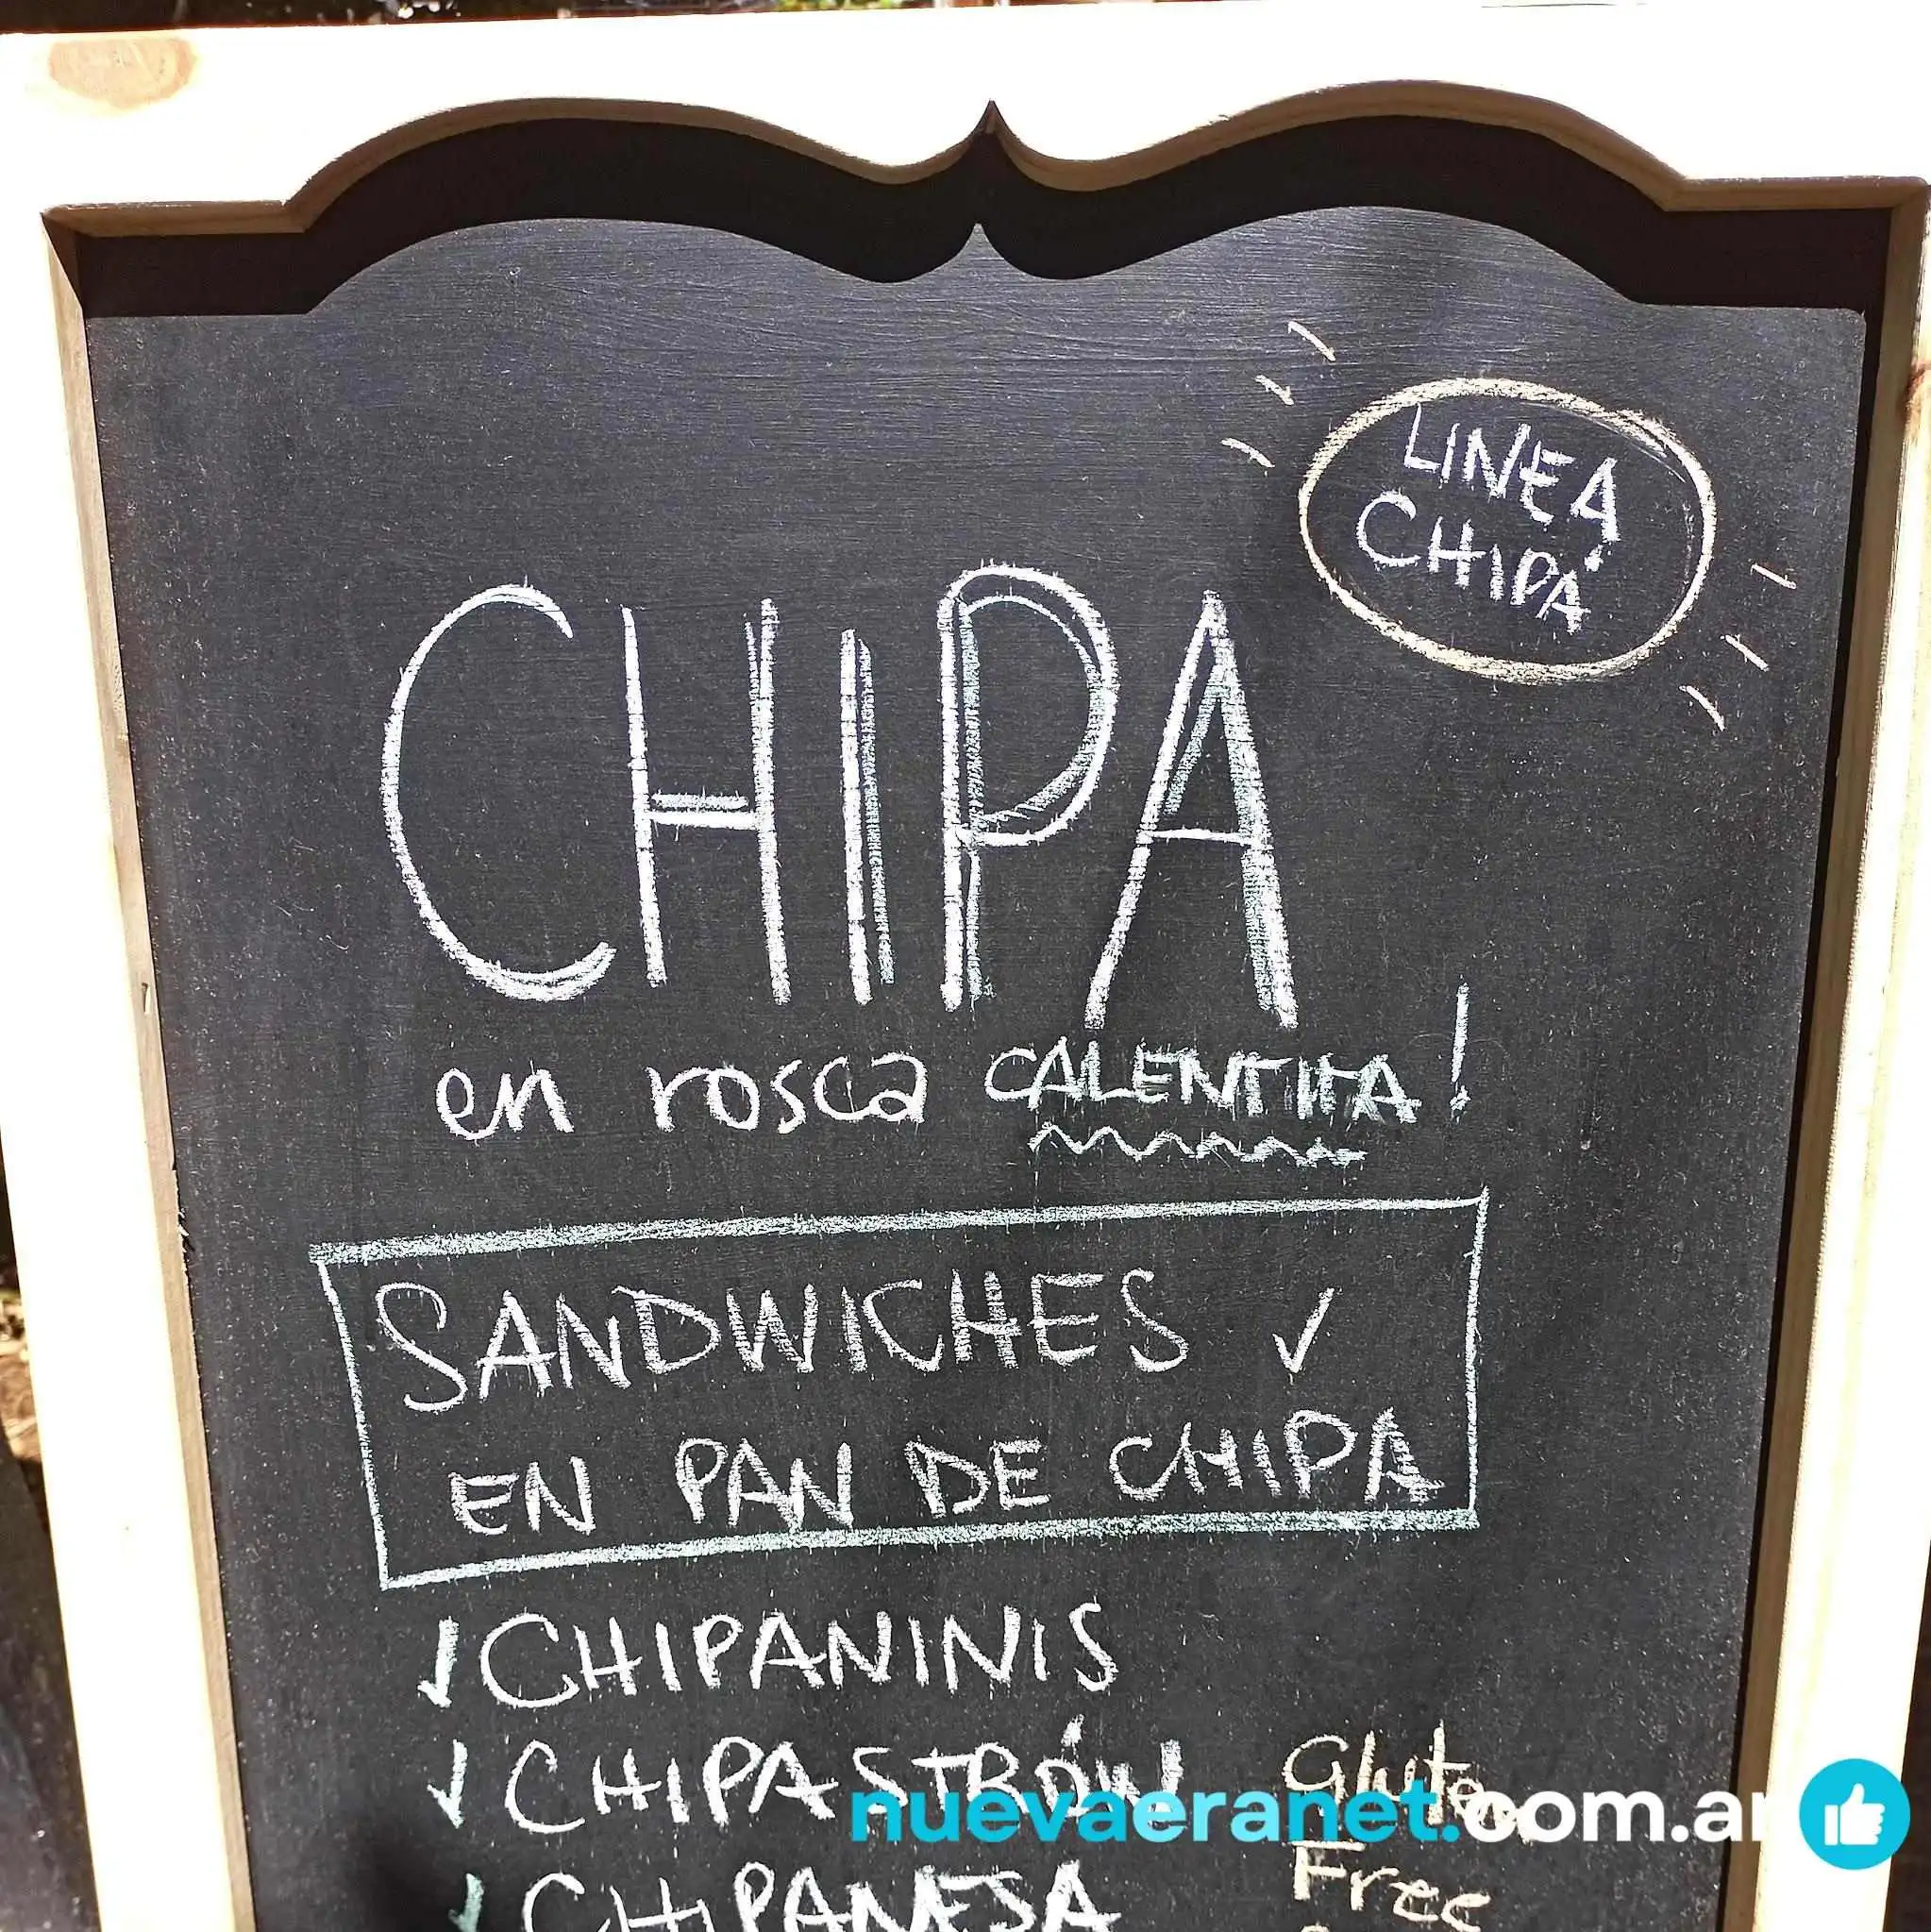 LINEA
CHIPÁ
CHIPA
en rosca CALENTITA!
SANDWICHES ✓
EN PAN DE CHIPA
✓ CHIPANINIS
✓ CHIPASTRÓN
Gluten
nuevaeranet.com.ar
Free
✓ CHIPANESA